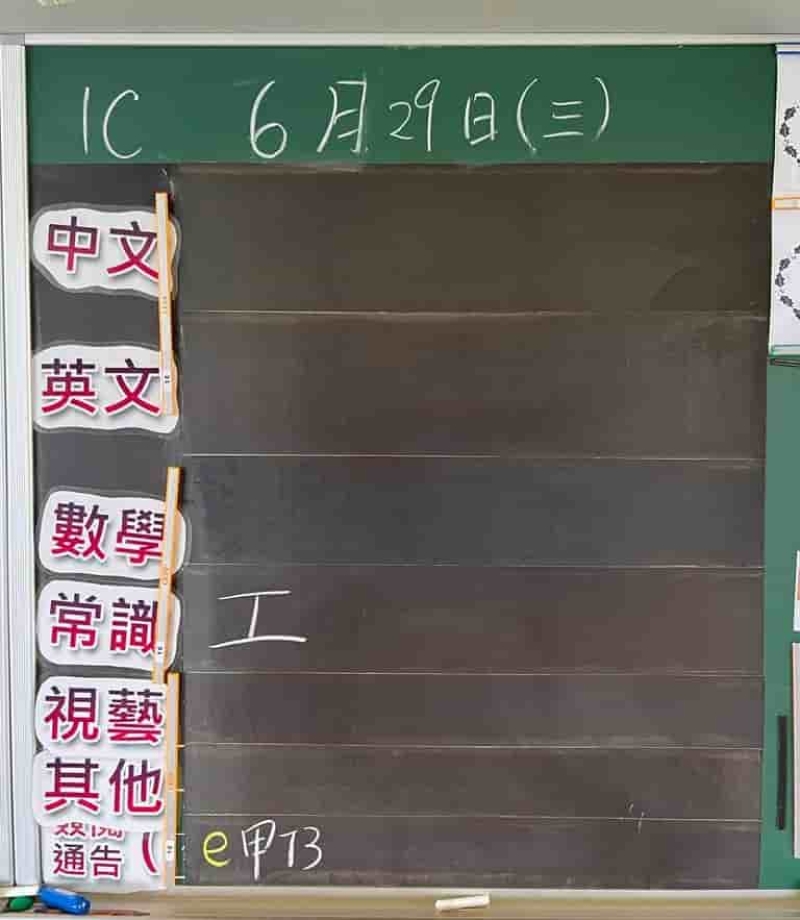 1C 6月29日(三)
中文
英文
數學
常識 工
視藝
其他
通告 ( e甲73